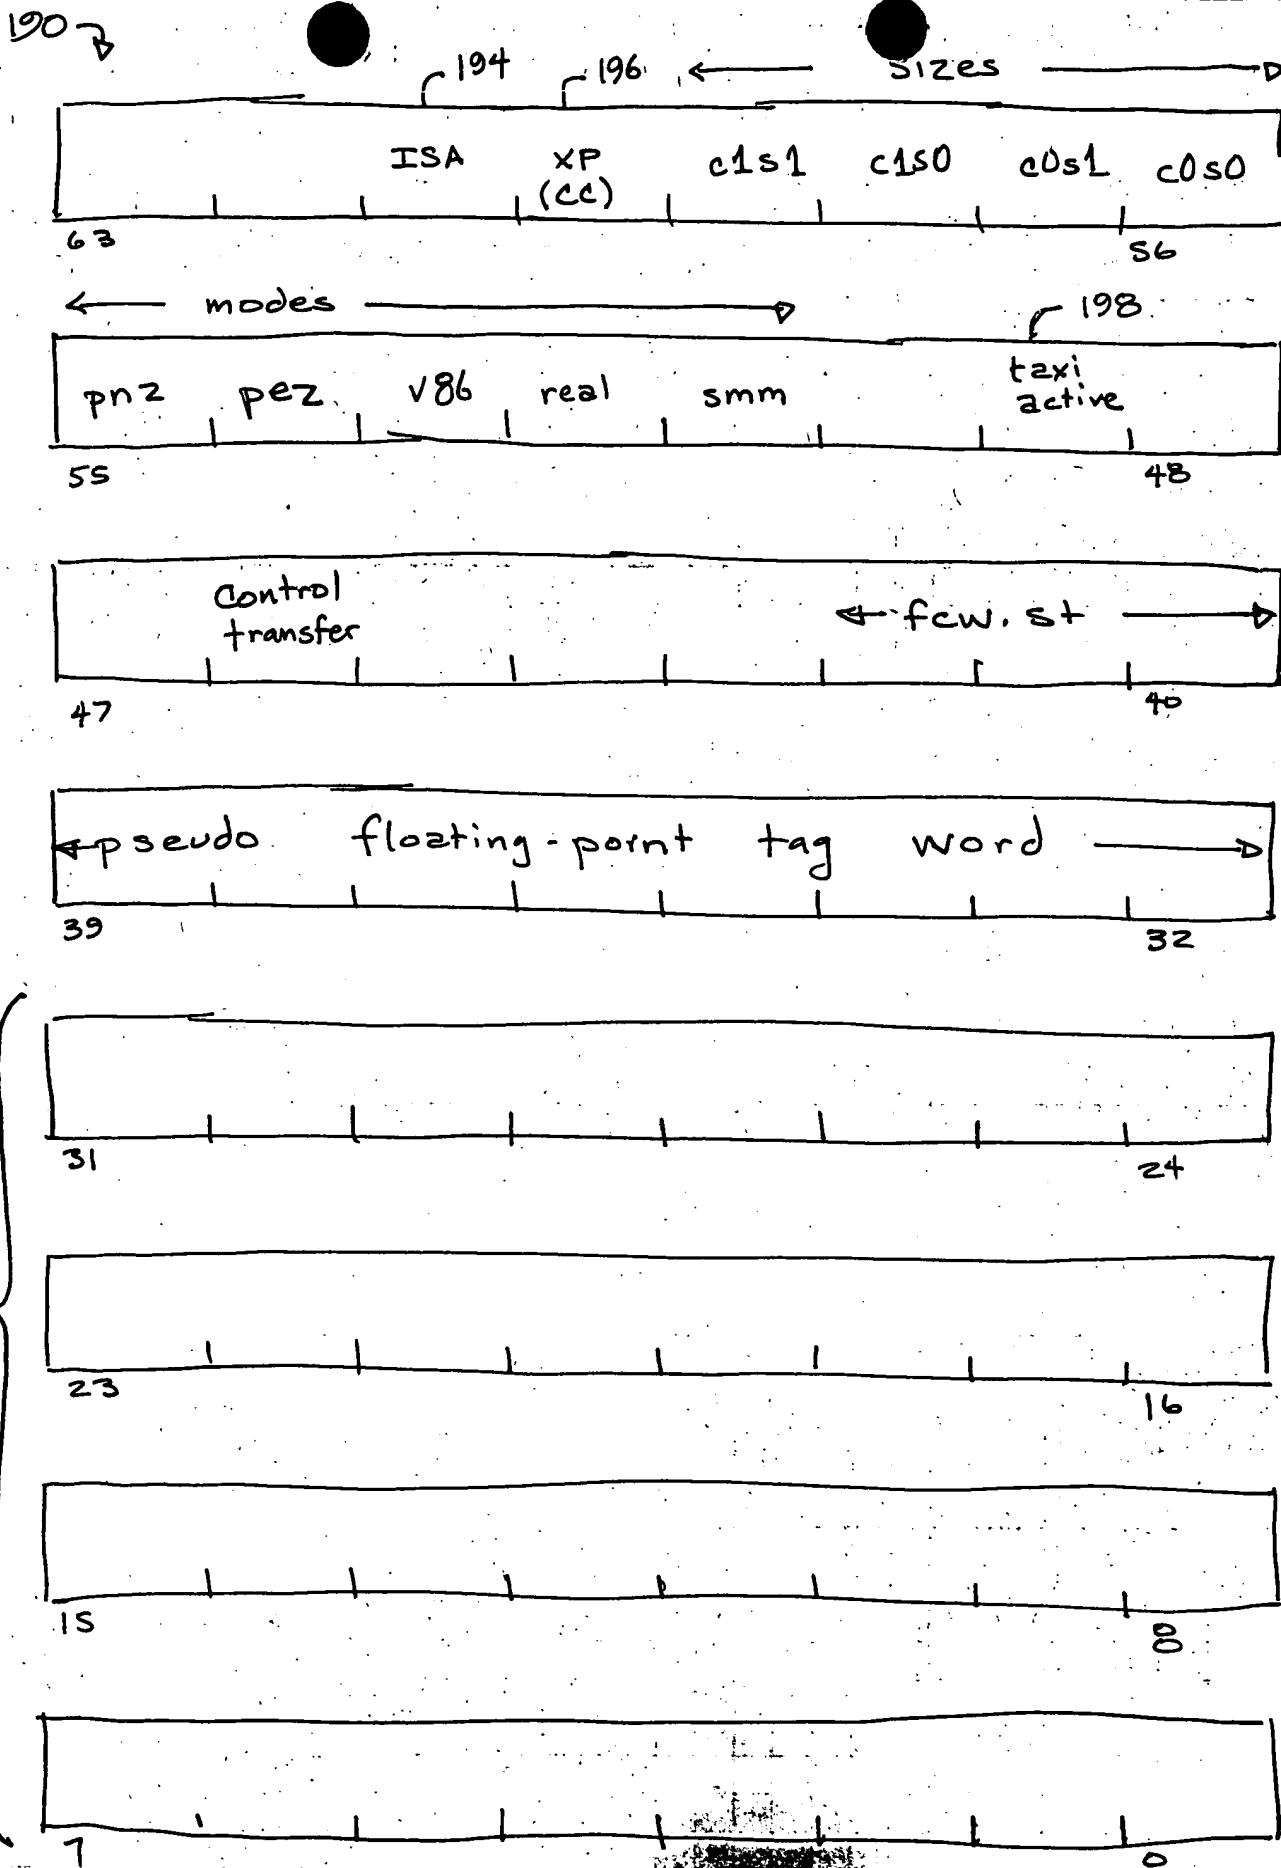 190
194 196 sizes
ISA XP c1s1 c1s0 c0s1 c0s0
(CC)
63 56
modes 198
pnz pez v86 real smm taxi
active
55 48
control
transfer fcw.st
47 40
pseudo floating-point tag word
39 32
31 24
23 16
15 8
7 0